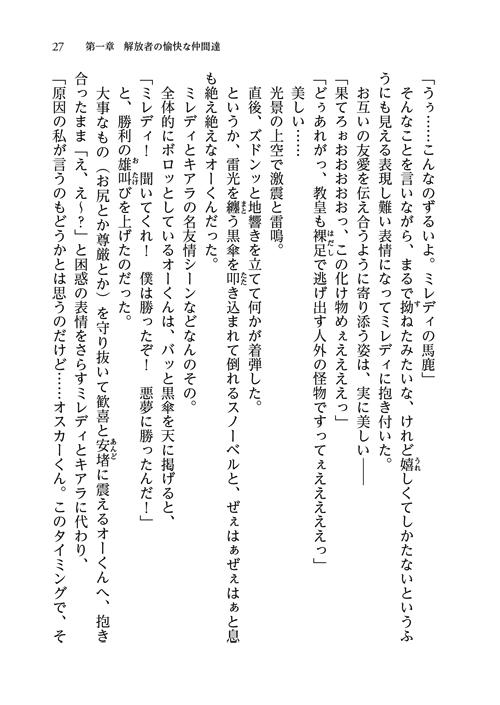 27　第一章　解放者の愉快な仲間達
「うぅ……こんなのずるいよ。ミレディの馬鹿」
　そんなことを言いながら、まるで拗ねたみたいな、けれど嬉しくてしかたないというふ
うにも見える表現し難い表情になってミレディに抱き付いた。
　お互いの友愛を伝え合うように寄り添う姿は、実に美しい――
「果てろぉおおおおおっ、この化け物めぇえええっ」
「どぅあれがっ、教皇も裸足で逃げ出す人外の怪物ですってぇえええええっ」
　美しい……
　光景の上空で激震と雷鳴。
　直後、ズドンッと地響きを立てて何かが着弾した。
　というか、雷光を纏う黒傘を叩き込まれて倒れるスノーベルと、ぜぇはぁぜぇはぁと息
も絶え絶えなオーくんだった。
　ミレディとキアラの名友情シーンなどなんのその。
　全体的にボロッとしているオーくんは、バッと黒傘を天に掲げると、
「ミレディ！　聞いてくれ！　僕は勝ったぞ！　悪夢に勝ったんだ！」
　と、勝利の雄叫びを上げたのだった。
　大事なもの（お尻とか尊厳とか）を守り抜いて歓喜と安堵に震えるオーくんへ、抱き
合ったまま「え、え～？」と困惑の表情をさらすミレディとキアラに代わり、
「原因の私が言うのもどうかとは思うのだけど……オスカーくん。このタイミングで、そ